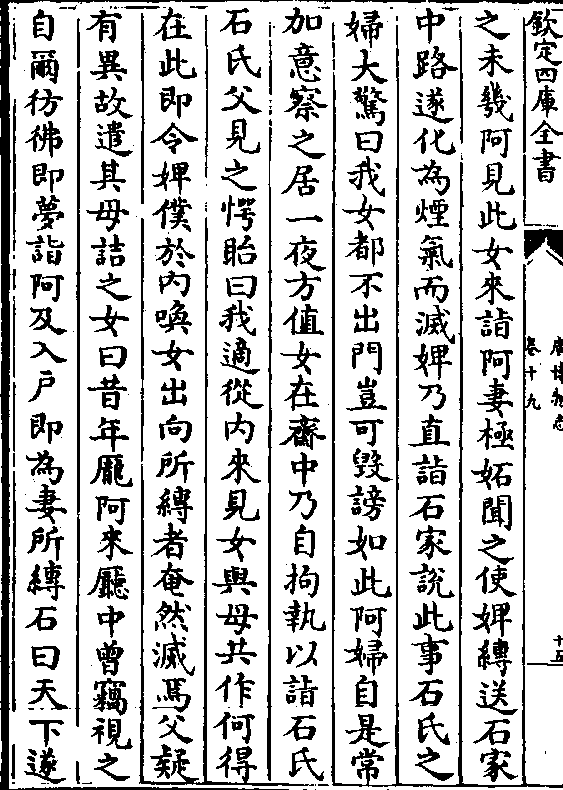 欽定四庫全書
廣博物志
卷十九
十五
之未幾阿見此女來詣阿妻極妬聞之使婢縛送石家
中路遂化為煙氣而滅婢乃直詣石家說此事石氏之
婦大驚曰我女都不出門豈可毀謗如此阿婦自是常
加意察之居一夜方值女在齋中乃自拘執以詣石氏
石氏父見之愕眙曰我適從內來見女與母共作何得
在此即令婢僕於內喚女出向所縛者奄然滅焉父疑
有異故遣其母詰之女曰昔年龎阿來廳中曾竊視之
自爾彷彿即夢詣阿及入戶即為妻所縛石曰天下遂